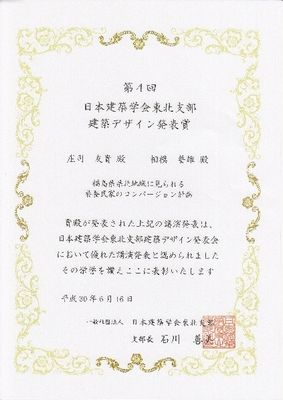 第4回
日本建築学会東北支部
建築デザイン発表賞
庄司 友貴 殿 相模 誓雄 殿
福島県県北地域に見られる
養蚕民家のコンバージョン計画
貴殿が発表された上記の講演発表は、
日本建築学会東北支部建築デザイン発表会
において優れた講演発表と認められました
その栄誉を讃えここに表彰いたします
平成30年6月16日
一般社団法人 日本建築学会東北支部
支部長 石川 善美